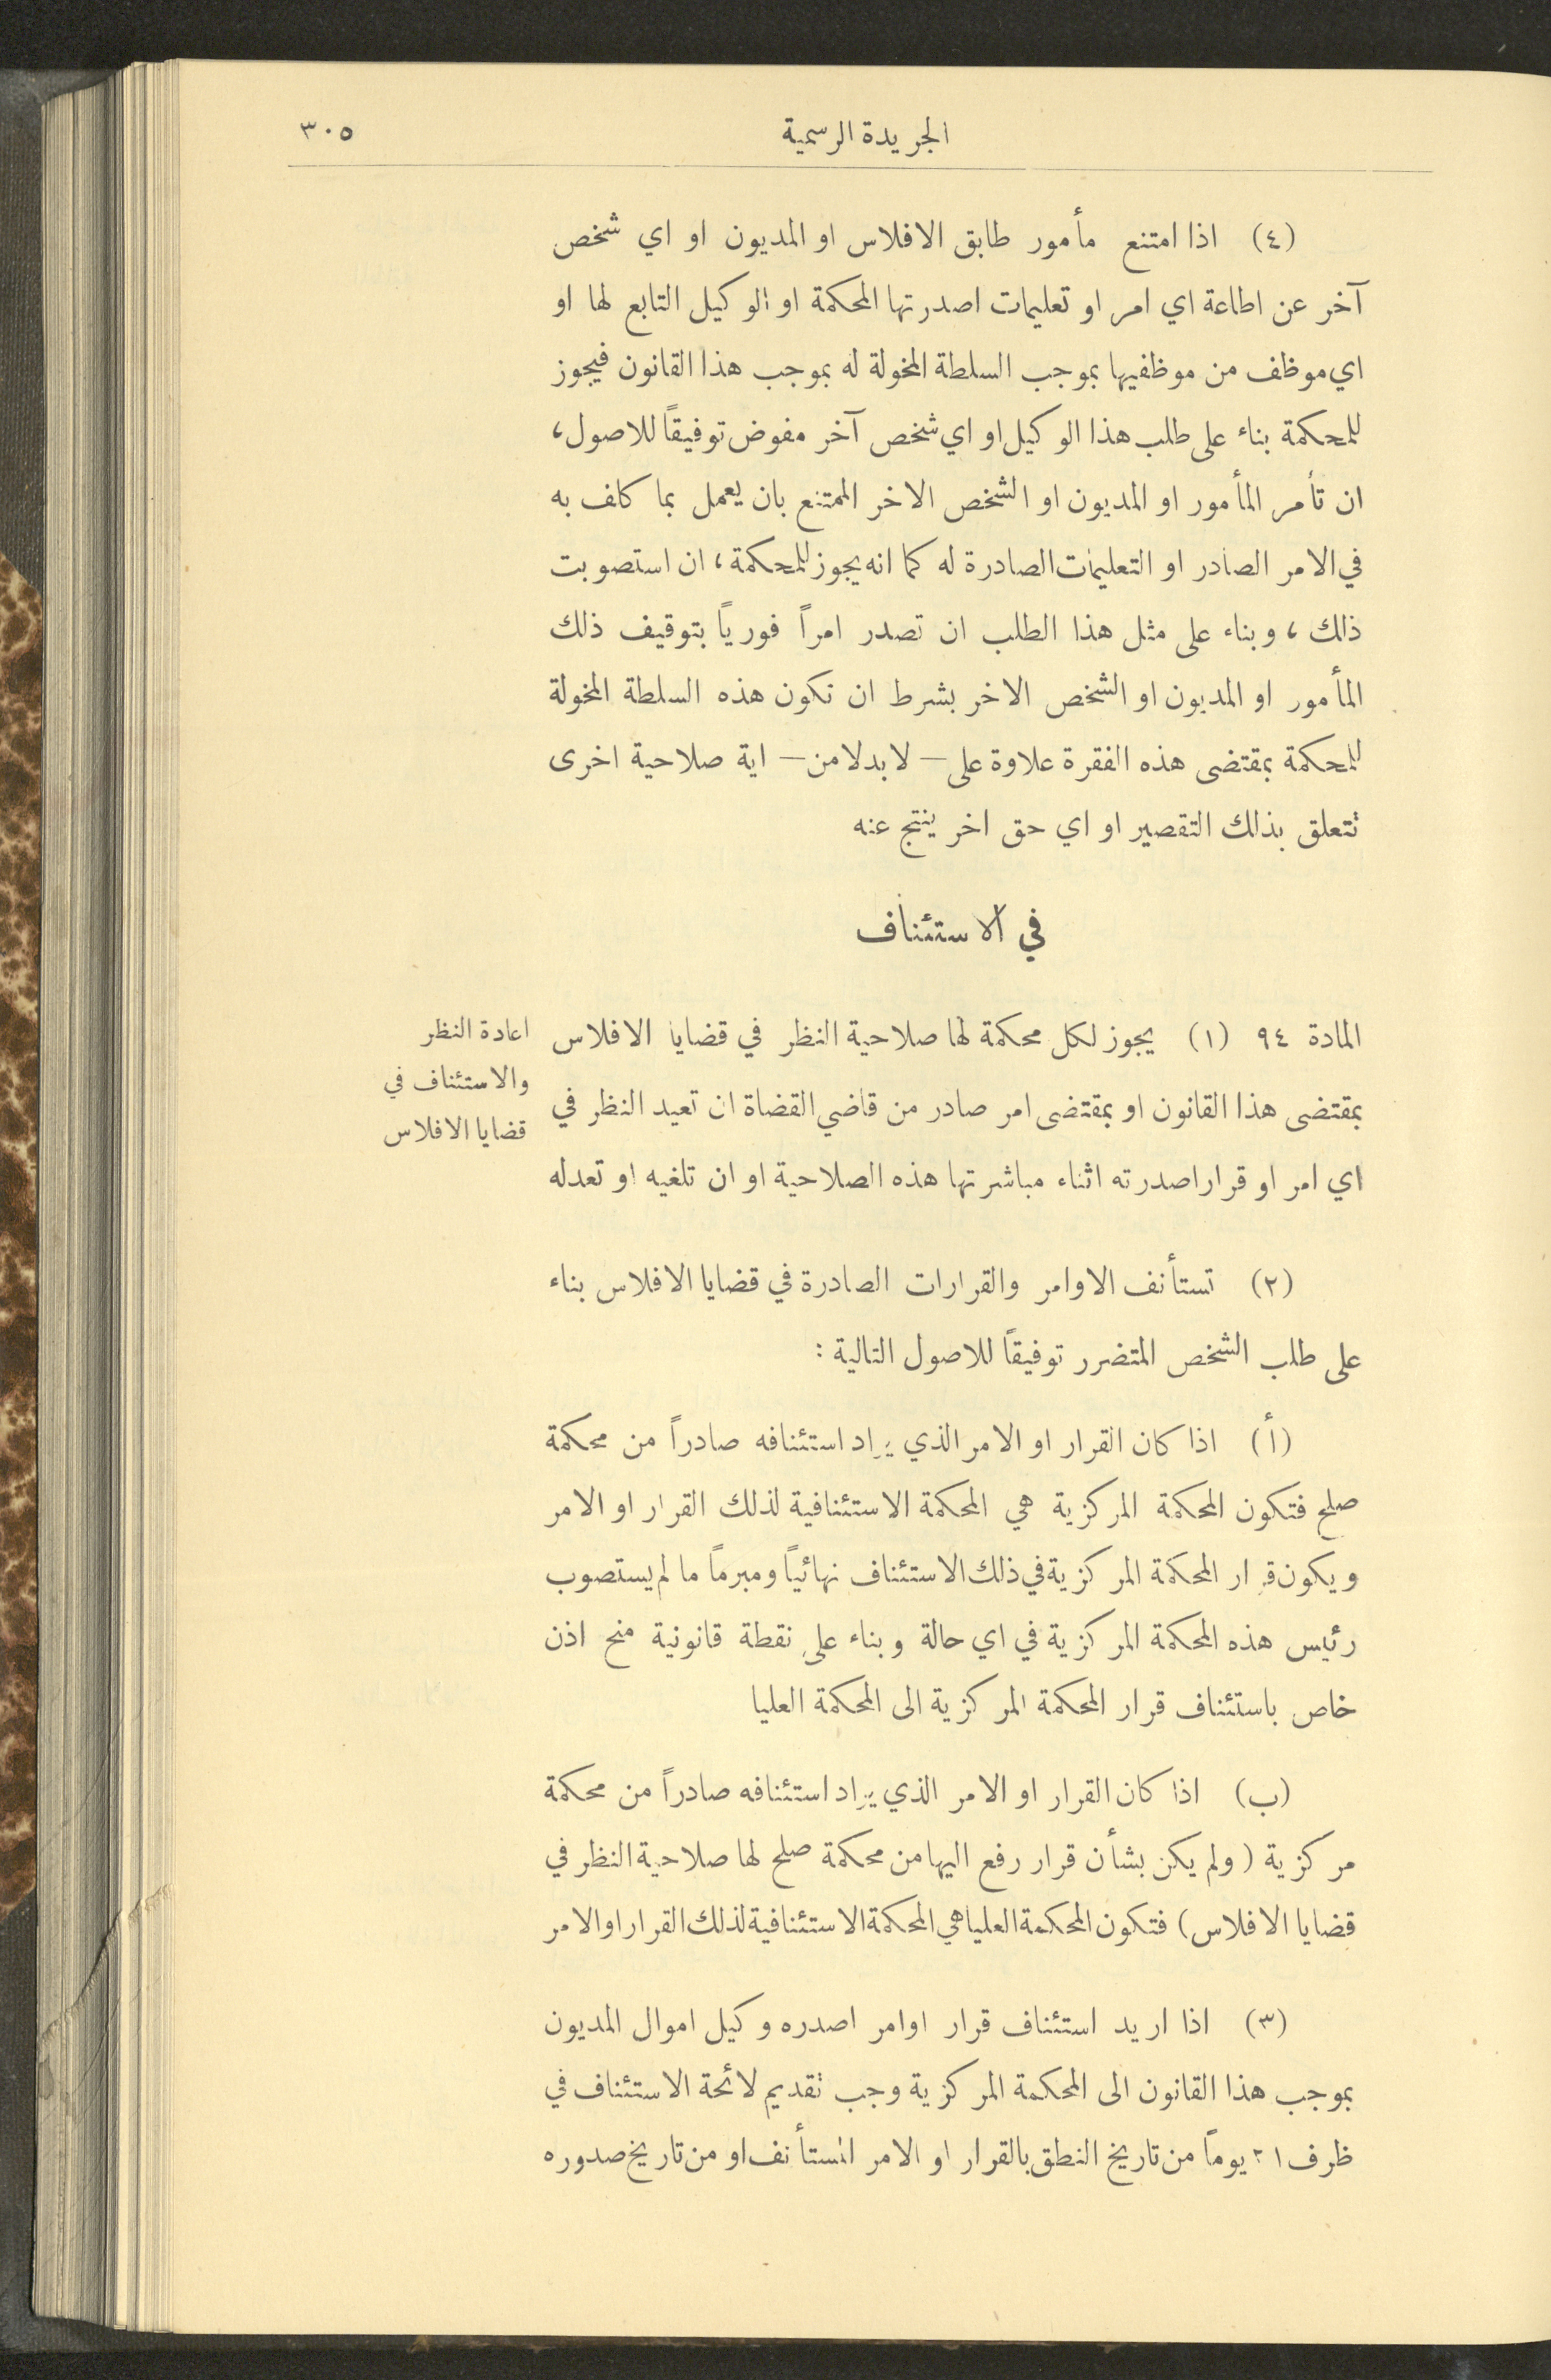 الجريدة الرسمية
٣٠٥
(٤) اذا امتنع مأمور طابق الافلاس او المديون او اي شخص
آخر عن اطاعة اي امر او تعليمات اصدرتها المحكمة او الوكيل التابع لها او
اي موظف من موظفيها بموجب السلطة المخولة له بموجب هذا القانون فيجوز
للمحكمة بناء على طلب هذا الوكيل او اي شخص آخر مفوض توفيقاً للاصول،
ان تأمر المأمور او المديون او الشخص الاخر الممتنع بان يعمل بما كلف به
في الامر الصادر او التعليمات الصادرة له كما انه يجوز للمحكمة، ان استصوبت
ذالك، وبناء على مثل هذا الطلب ان تصدر امراً فورياً بتوقيف ذلك
المأمور او المديون او الشخص الاخر بشرط ان تكون هذه السلطة المخولة
للمحكمة بمقتضى هذه الفقرة علاوة على – لا بدلا من – اية صلاحية اخرى
تتعلق بذلك التقصير او اي حق اخر ينتج عنه
في الاستئناف
المادة ٩٤ (١) يجوز لكل محكمة لها صلاحية النظر في قضايا الافلاس
بمقتضى هذا القانون او بمقتضى امر صادر من قاضي القضاة ان تعيد النظر في
اي امر او قرار اصدرته اثناء مباشرتها هذه الصلاحية او ان تلغيه او تعدله
اعادة النظر
والاستئناف في
قضايا الافلاس
(٢) تستأنف الاوامر والقرارات الصادرة في قضايا الافلاس بناء
على طلب الشخص المتضرر توفيقاً للاصول التالية :
(أ) اذا كان القرار او الامر الذي يراد استئنافه صادراً من محكمة
صلح فتكون المحكمة المركزية هي المحكمة الاستئنافية لذلك القرار او الامر
ويكون قرار المحكمة المركزية في ذلك الاستئناف نهائياً ومبرماً ما لم يستصوب
رئيس هذه المحكمة المركزية في اي حالة وبناء على نقطة قانونية منح اذن
خاص باستئناف قرار المحكمة المركزية الى المحكمة العليا
(ب) اذا كان القرار او الامر الذي يراد استئنافه صادراً من محكمة
مركزية (ولم يكن بشأن قرار رفع اليها من محكمة صلح لها صلاحية النظر في
قضايا الافلاس) فتكون المحكمة العليا هي المحكمة الاستئنافية لذلك القرار او الامر
(٣) اذا اريد استئناف قرار اوامر اصدره وكيل اموال المديون
بموجب هذا القانون الى المحكمة المركزية وجب تقديم لائحة الاستئناف في
ظرف ٢١ يوماً من تاريخ النطق بالقرار او الامر المستأنف او من تاريخ صدوره